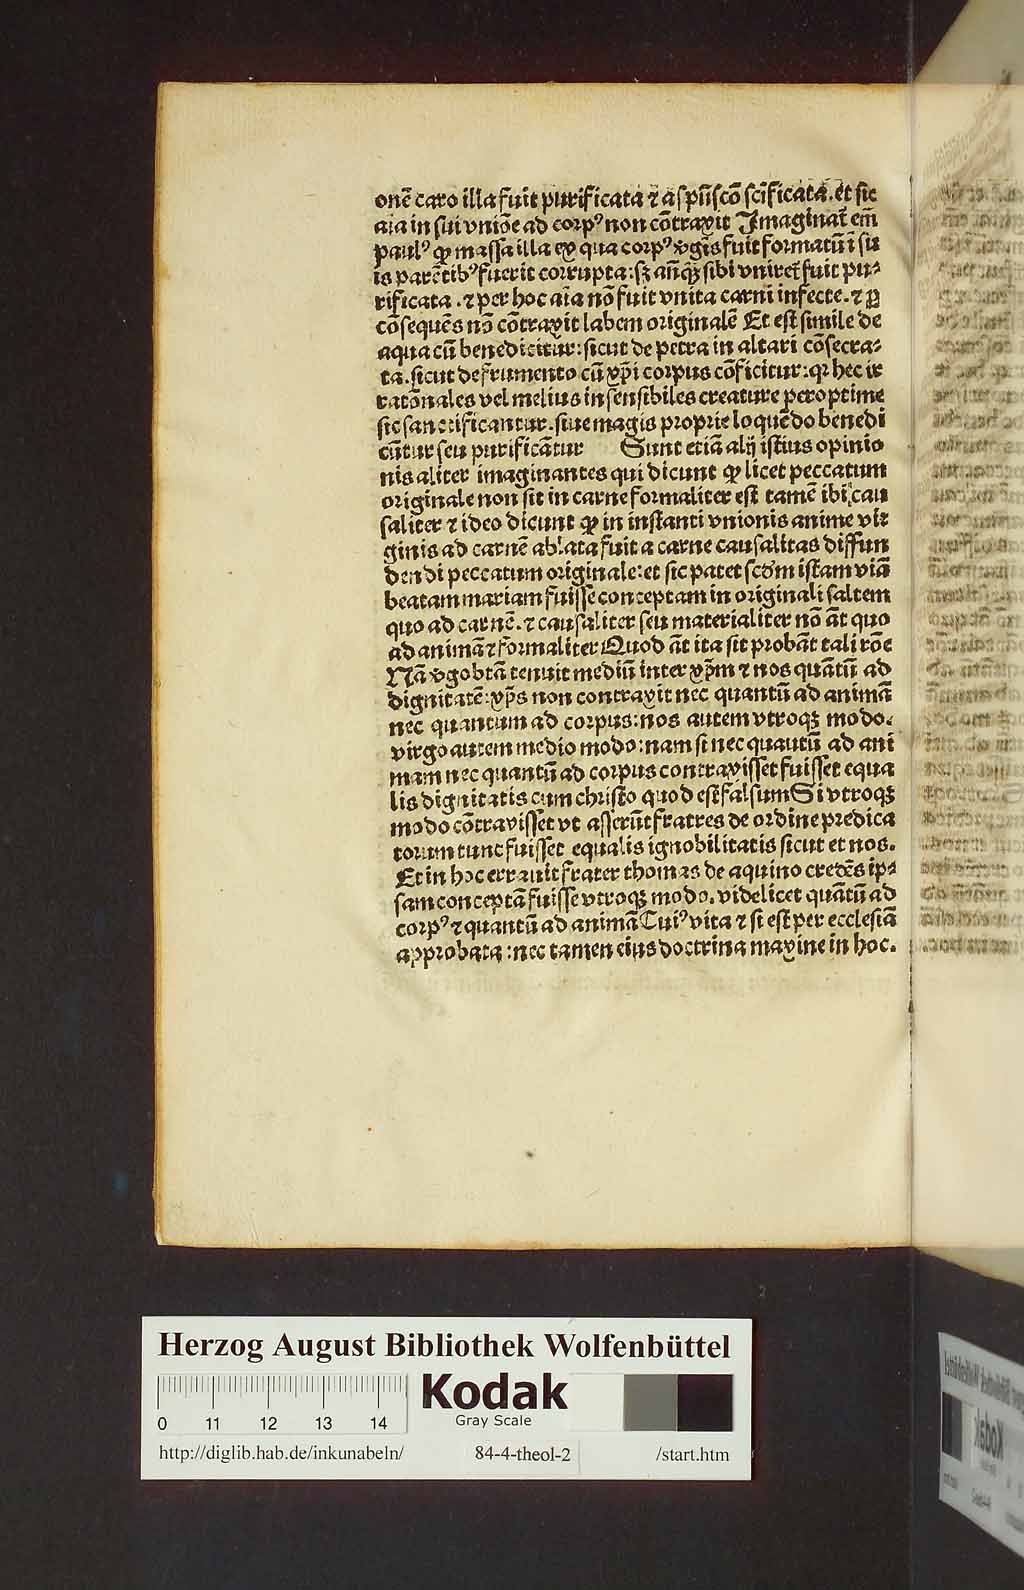 onē caro illa fuit purificata ⁊ a spūscō scīficata. et sic
aīa in sui vniōe ad corpꝰ non cōtraxit Imaginat̄ em̄
paulꝰ ꝙ massa illa ex qua corpꝰ v̄gīs fuit formatū ī su
is parētibꝰ fuerit corrupta: sꝫ anꝙꝫ sibi vniret᷑ fuit pu⸗
rificata . ⁊ per hoc aīa nō fuit vnita carni infecte. ⁊ ꝑ
cōsequēs nō cōtraxit labem originalē Et est simile de
aqua cū benedicitur: sicut de petra in altari cōsecra⸗
ta. sicut de frumento cū xp̄i corpus cōficitur: qꝛ hec ir
ratōnales vel melius insensibiles creature peroptime
sic sanctificantur. siue magis proprie loquēdo benedi
cūtur seu purificātur Sunt etiā alij istius opinio
nis aliter imaginantes qui dicunt ꝙ licet peccatum
originale non sit in carne formaliter est tamē ibi cau
saliter ⁊ ideo dicunt ꝙ in instanti vnionis anime vir
ginis ad carnē ablata fuit a carne causalitas diffun
dendi peccatum originale: et sic patet scd̄m istam viā
beatam mariam fuisse conceptam in originali saltem
quo ad carnē. ⁊ causaliter seu materialiter nō āt quo
ad animā ⁊ formaliter Quod āt ita sit probāt tali rōe
Nā v̄go btā tenuit mediū inter xp̄m ⁊ nos quātū ad
dignitatē: xp̄s non contraxit nec quantū ad animā
nec quantum ad corpus: nos autem vtroqꝫ modo.
virgo autem medio modo: nam si nec quautū ad ani
mam nec quantū ad corpus contraxisset fuisset equa
lis dignitatis cum christo quod est falsum Si vtroqꝫ
modo cōtraxisset vt asserūt fratres de ordine predica
torum tunc fuisset equalis ignobilitatis sicut et nos.
Et in hoc errauit frater thomas de aquino credēs ip⸗
sam conceptā fuisse vtroqꝫ modo. videlicet quātū ad
corpꝰ ⁊ quantū ad animā Cuiꝰ vita ⁊ si est per ecclesiā
approbata : nec tamen eius doctrina maxine in hoc.
Herzog August Bibliothek Wolfenbüttel
Kodak
Gray Scale
0 11 12 13 14
http://diglib.hab.de/inkunabeln/ 84-4-theol-2 /start.htm